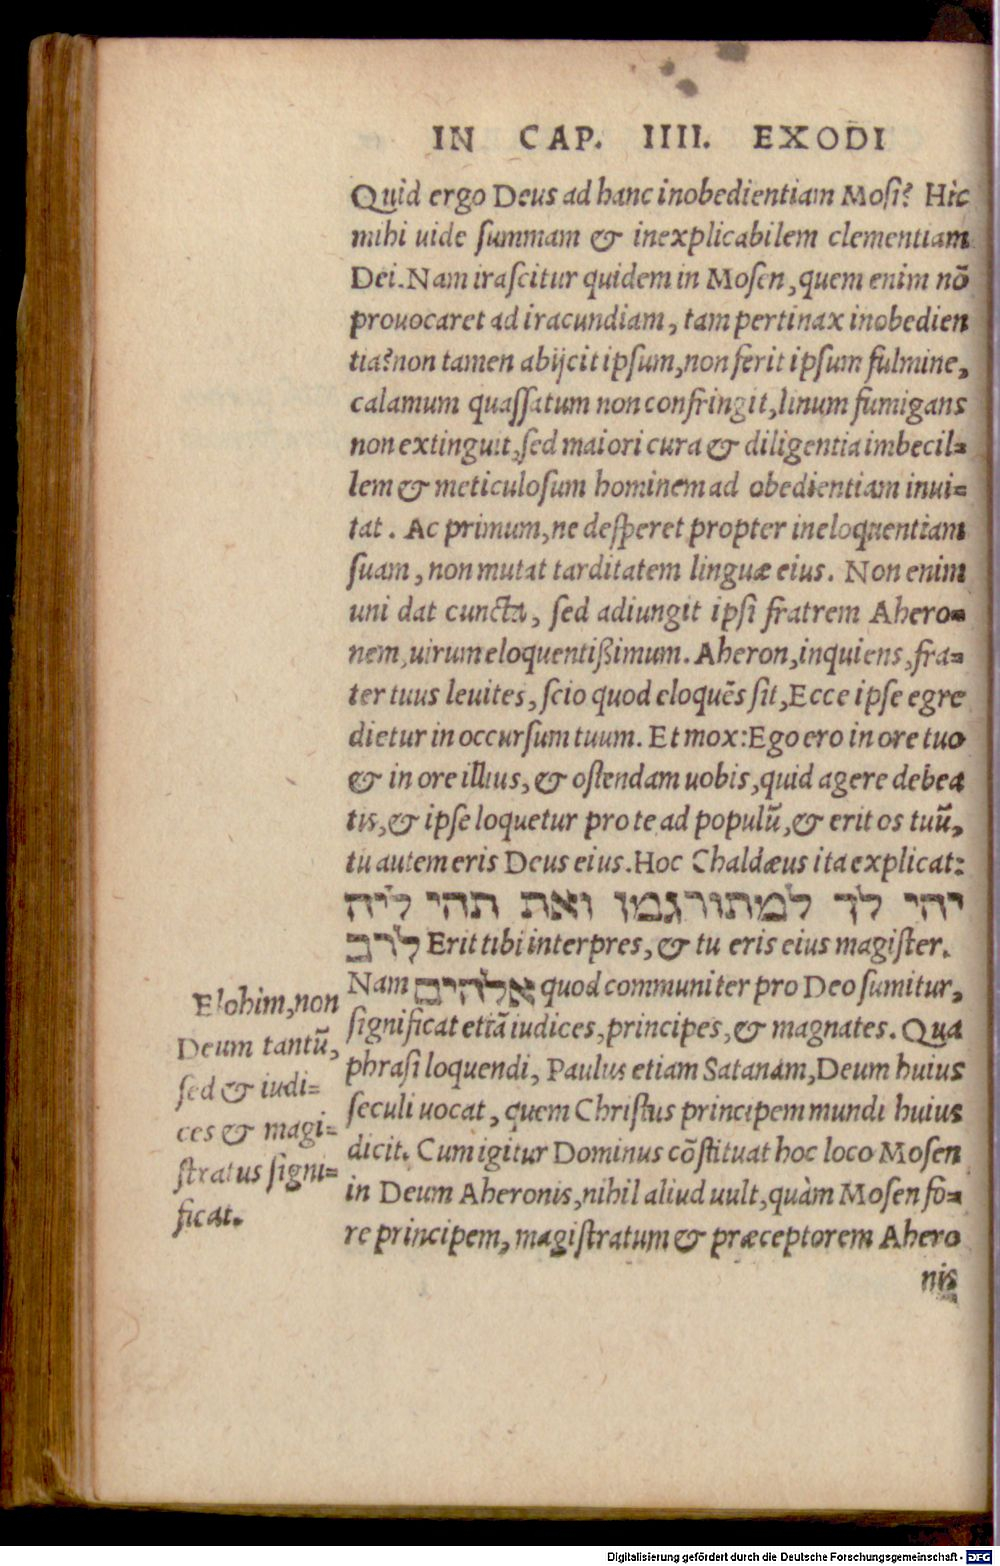 IN CAP. IIII. EXODI
Quid ergo Deus ad hanc inobedientiam Mosi? Hîc
mihi uide summam & inexplicabilem clementiam
Dei. Nam irascitur quidem in Mosen, quem enim nō
prouocaret ad iracundiam, tam pertinax inobedien
tia? non tamen abijcit ipsum, non ferit ipsum fulmine,
calamum quassatum non confringit, linum fumigans
non extinguit, sed maiori cura & diligentia imbecil=
lem & meticulosum hominem ad obedientiam inui=
tat. Ac primum, ne desperet propter ineloquentiam
suam, non mutat tarditatem linguæ eius. Non enim
uni dat cuncta, sed adiungit ipsi fratrem Ahero=
nem, uirum eloquentißimum. Aheron, inquiens, fra=
ter tuus leuites, scio quod eloquēs sit, Ecce ipse egre
dietur in occursum tuum. Et mox: Ego ero in ore tuo
& in ore illius, & ostendam uobis, quid agere debea
tis, & ipse loquetur pro te ad populū, & erit os tuū,
tu autem eris Deus eius. Hoc Chaldæus ita explicat:
יהי לך למתורגמן ואת תהי ליה
לרב Erit tibi interpres, & tu eris eius magister.
Nam אלהים quod communiter pro Deo sumitur,
significat etiā iudices, principes, & magnates. Qua
phrasi loquendi, Paulus etiam Satanam, Deum huius
seculi uocat, quem Christus principem mundi huius
dicit. Cum igitur Dominus cōstituat hoc loco Mosen
in Deum Aheronis, nihil aliud uult, quàm Mosen fo=
re principem, magistratum & præceptorem Ahero
nis
Elohim, non
Deum tantū,
sed & iudi=
ces & magi=
stratus signi=
ficat.
Digitalisierung gefördert durch die Deutsche Forschungsgemeinschaft - DFG